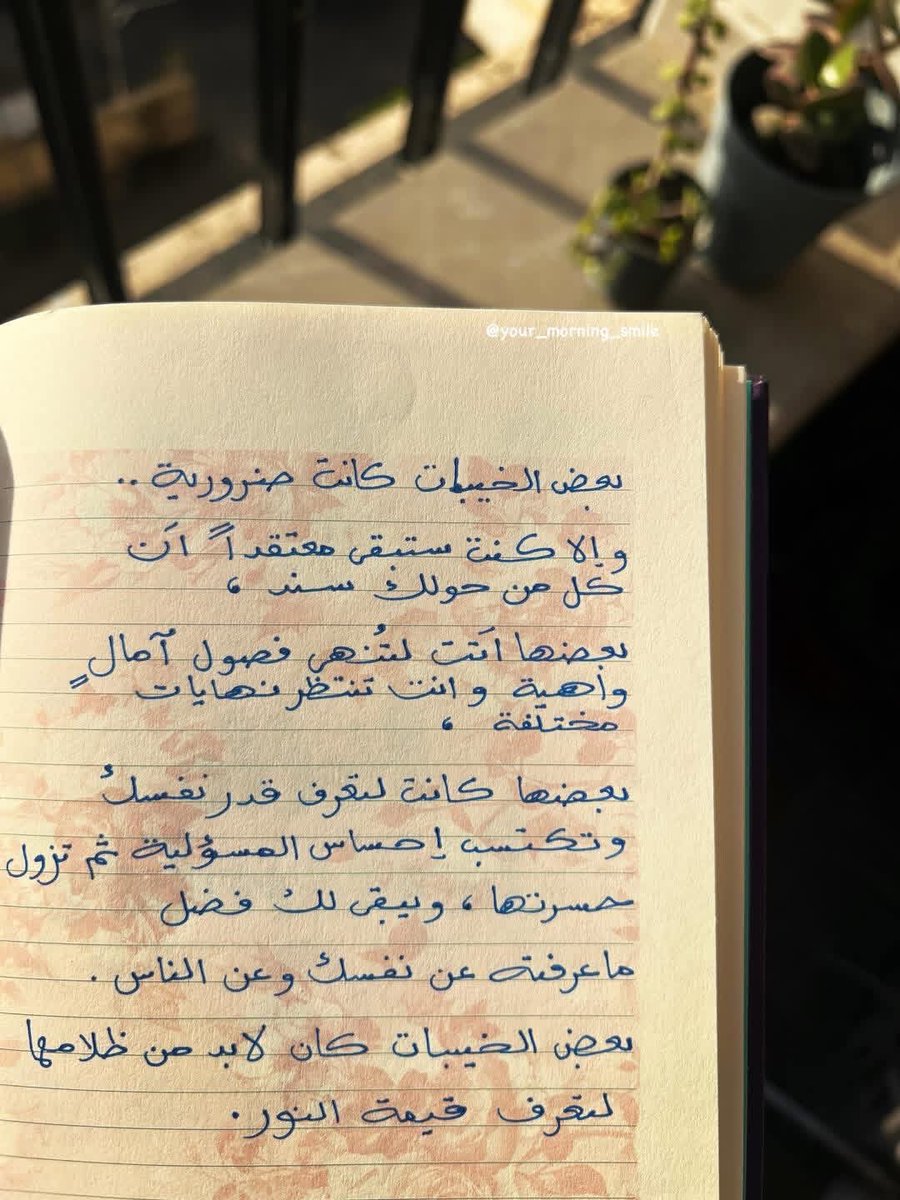 @your_morning_smile
بعض الخيبات كانت ضرورية ..
وإلا كنت ستبقى معتقداً أن
كل من حولك سند ،
بعضها أتت لتُنهي فصول آمالٍ
واهية وانت تنتظر نهايات
مختلفة ،
بعضها كانت لتعرف قدر نفسك
وتكتسب إحساس المسؤلية ثم تزول
حسرتها ، ويبقى لك فضل
ماعرفته عن نفسك وعن الناس .
بعض الخيبات كان لابد من ظلامها
لتعرف قيمة النور .